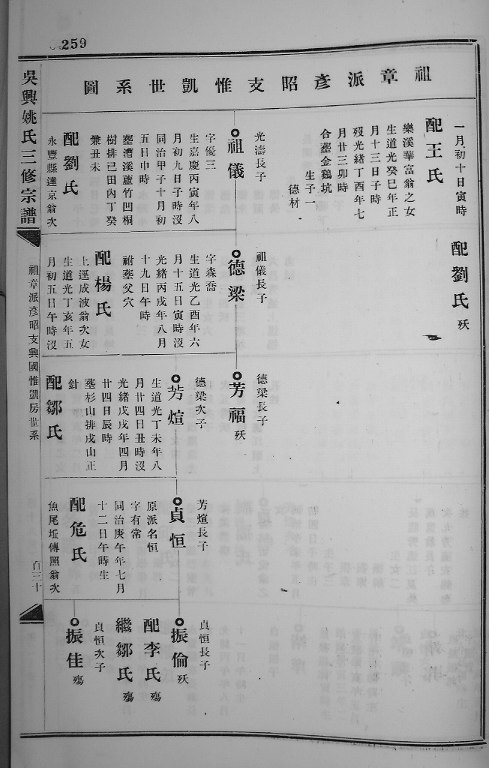 259
祖章派彥昭支惟凱世系圖
一月初十日寅時
配王氏
樂溪華富翁之女
生道光癸巳年正
月十三日子時
歿光緒丁酉年七
月廿三卯時
合塟金鷄坑
生子一
德材
光濤長子
祖儀
字優三
生嘉慶丙寅年八
月初九日子時沒
同治甲子十月初
五日申時
塟漕溪蘆竹凹桐
樹排己田內丁癸
兼丑未
配劉氏
永豐縣蓮京翁次
配劉氏 殀
祖儀長子
德梁
字森喬
生道光乙酉年六
月十五日寅時沒
光緒丙戌年八月
十九日午時
祔塟父穴
配楊氏
上逕成波翁次女
生道光丁亥年五
月初五日午時沒
德梁長子
芳福 殀
德梁次子
芳煊
生道光丁未年八
月廿四日丑時沒
光緒戊戌年四月
廿四日辰時
塟杉山排戌山正
針
配鄒氏
芳煊長子
貞恒
原派名恒
字有常
同治庚午年七月
十二日午時生
配危氏
魚尾坵傅照翁次
貞恒長子
振倫 殀
配李氏 殤
繼鄒氏 殤
貞恒次子
振佳 殤
吳興姚氏三修宗譜
祖章派彥昭支興國惟凱房世系
百三十